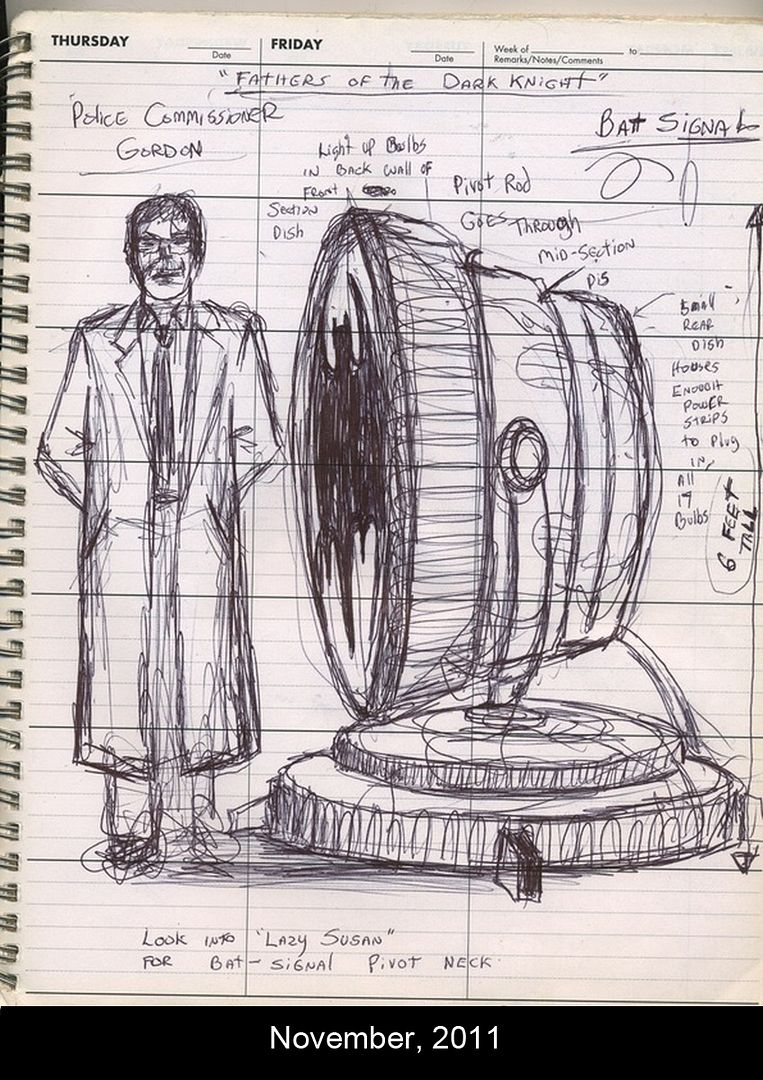 THURSDAY
Date
FRIDAY
Date
Week of to
Remarks/Notes/Comments
"FATHERS OF the DARK KNIGHT"
Police Commissioner
GORDON
BAt SIGNAL
Light up Bulbs
IN BACK WALL OF
FRONT
SECTION
DISH
Pivot Rod
GOES THROUGH
MID-SECTION
DIS
SMALL
REAR
DISH
HOUSES
ENOUGH
POWER
STRIPS
to Plug
IN
All
19
Bulbs
6 FEET
TALL
LOOK INTO "LAZY SUSAN"
FOR BAT-SIGNAL PIVOT NECK
November, 2011